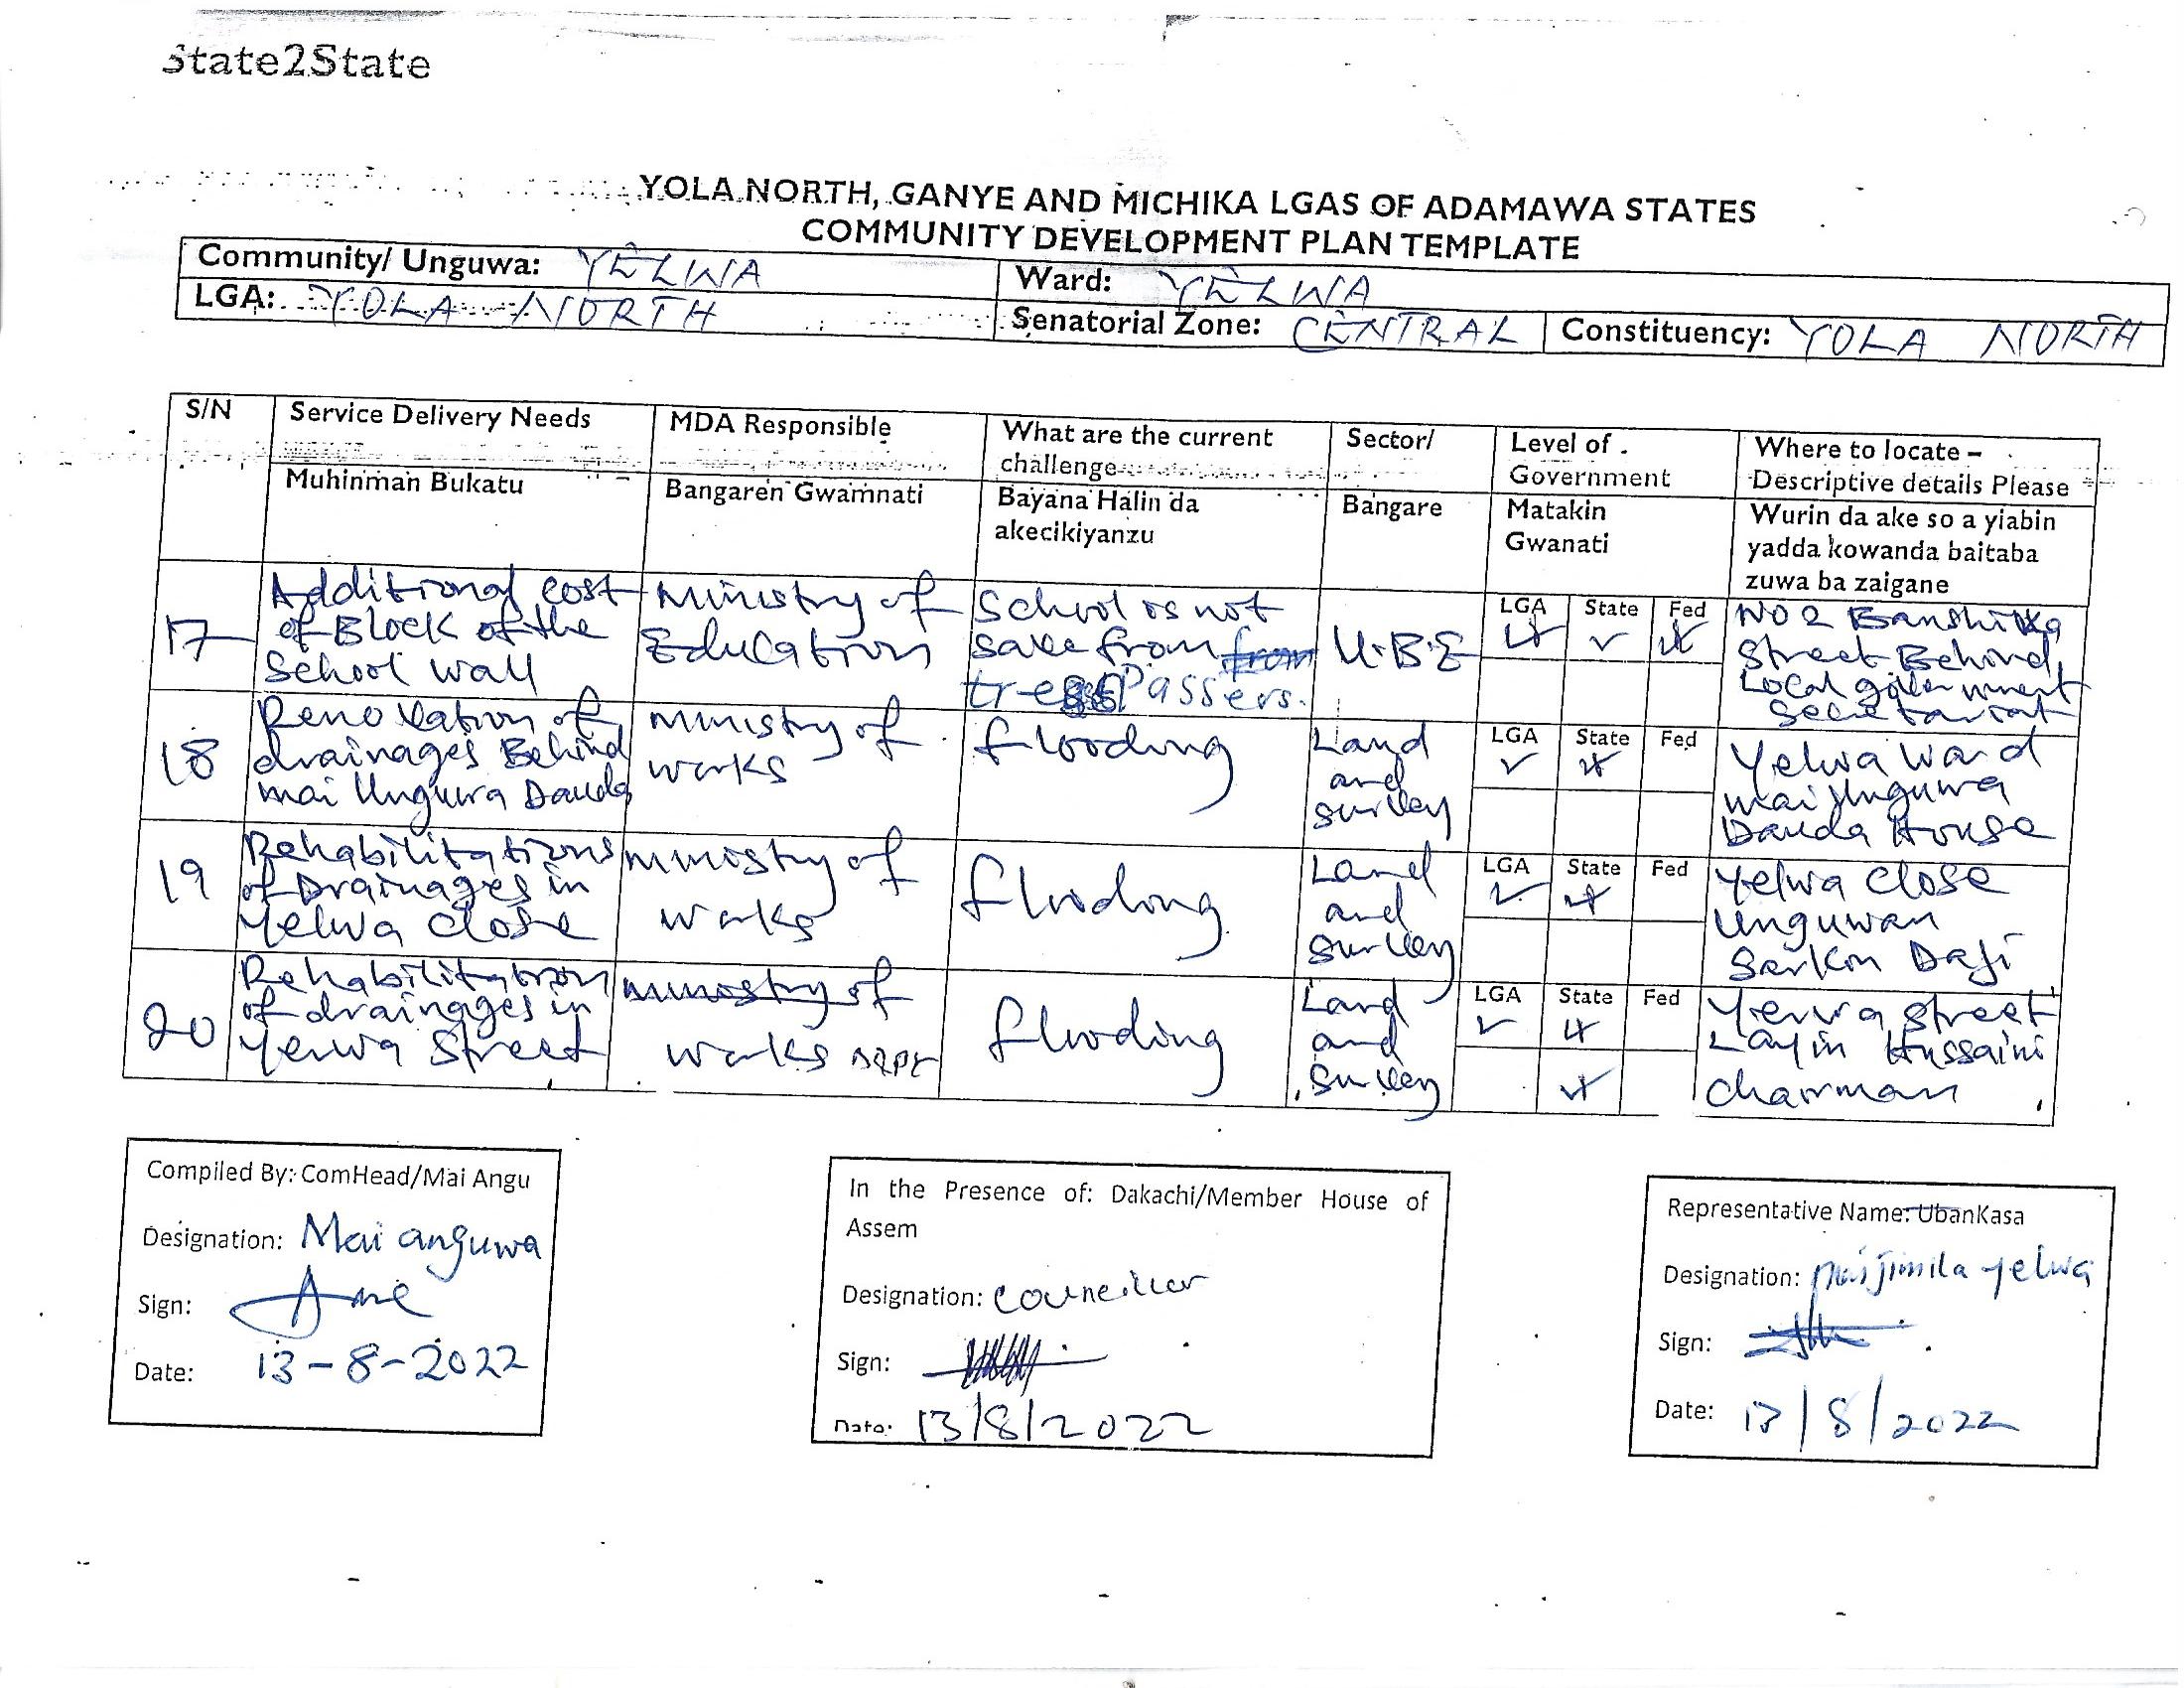 State2State
YOLA NORTH, GANYE AND MICHIKA LGAS OF ADAMAWA STATES
COMMUNITY DEVELOPMENT PLAN TEMPLATE
Community/ Unguwa: YELWA Ward: YELWA
LGA: YOLA NORTH Senatorial Zone: CENTRAL Constituency: YOLA NORTH
S/N Service Delivery Needs MDA Responsible What are the current challenge Sector/ Level of Government Where to locate – Descriptive details Please
Muhinman Bukatu Bangaren Gwamnati Bayana Halin da akecikiyanzu Bangare Matakin Gwanati Wurin da ake so a yiabin yadda kowanda baitaba zuwa ba zaigane
17 Additional cost of Block of the School wall
Ministry of Education
School is not save from from trespassers.
U.B.E
LGA State Fed
✓ ✓ ✓
NO 2 Street Behind, Local government Secretariat
18 Renovation of drainages Behind mai Unguwa Dauda
ministry of works
flooding
Land and survey
LGA State Fed
✓ ✓
Yelwa Ward mai Unguwa Dauda House
19 Rehabilitations of Drainages in Yelwa close
ministry of works
flooding
Land and survey
LGA State Fed
✓ ✓
Yelwa close Unguwan Sarkin Daji
20 Rehabilitation of drainages in Yerwa Street
ministry of works Dept
flooding
Land and survey
LGA State Fed
✓ ✓
✓
Yerwa street Layin Hussaini chairman
Compiled By: ComHead/Mai Angu
Designation: Mai anguwa
Sign:
Date: 13-8-2022
In the Presence of: Dakachi/Member House of
Assem
Designation: councillor
Sign:
Date: 13/8/2022
Representative Name: UbanKasa
Designation: maijimila yelwa
Sign:
Date: 13/8/2022